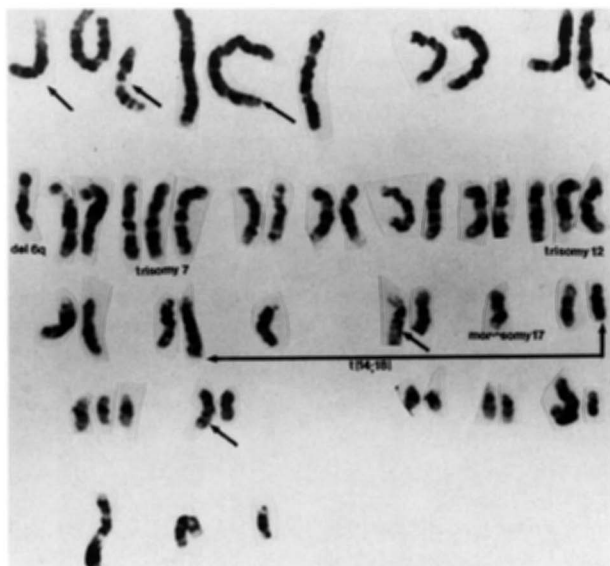 del 6q
trisomy 7
trisomy 12
monosomy 17
t(14;18)